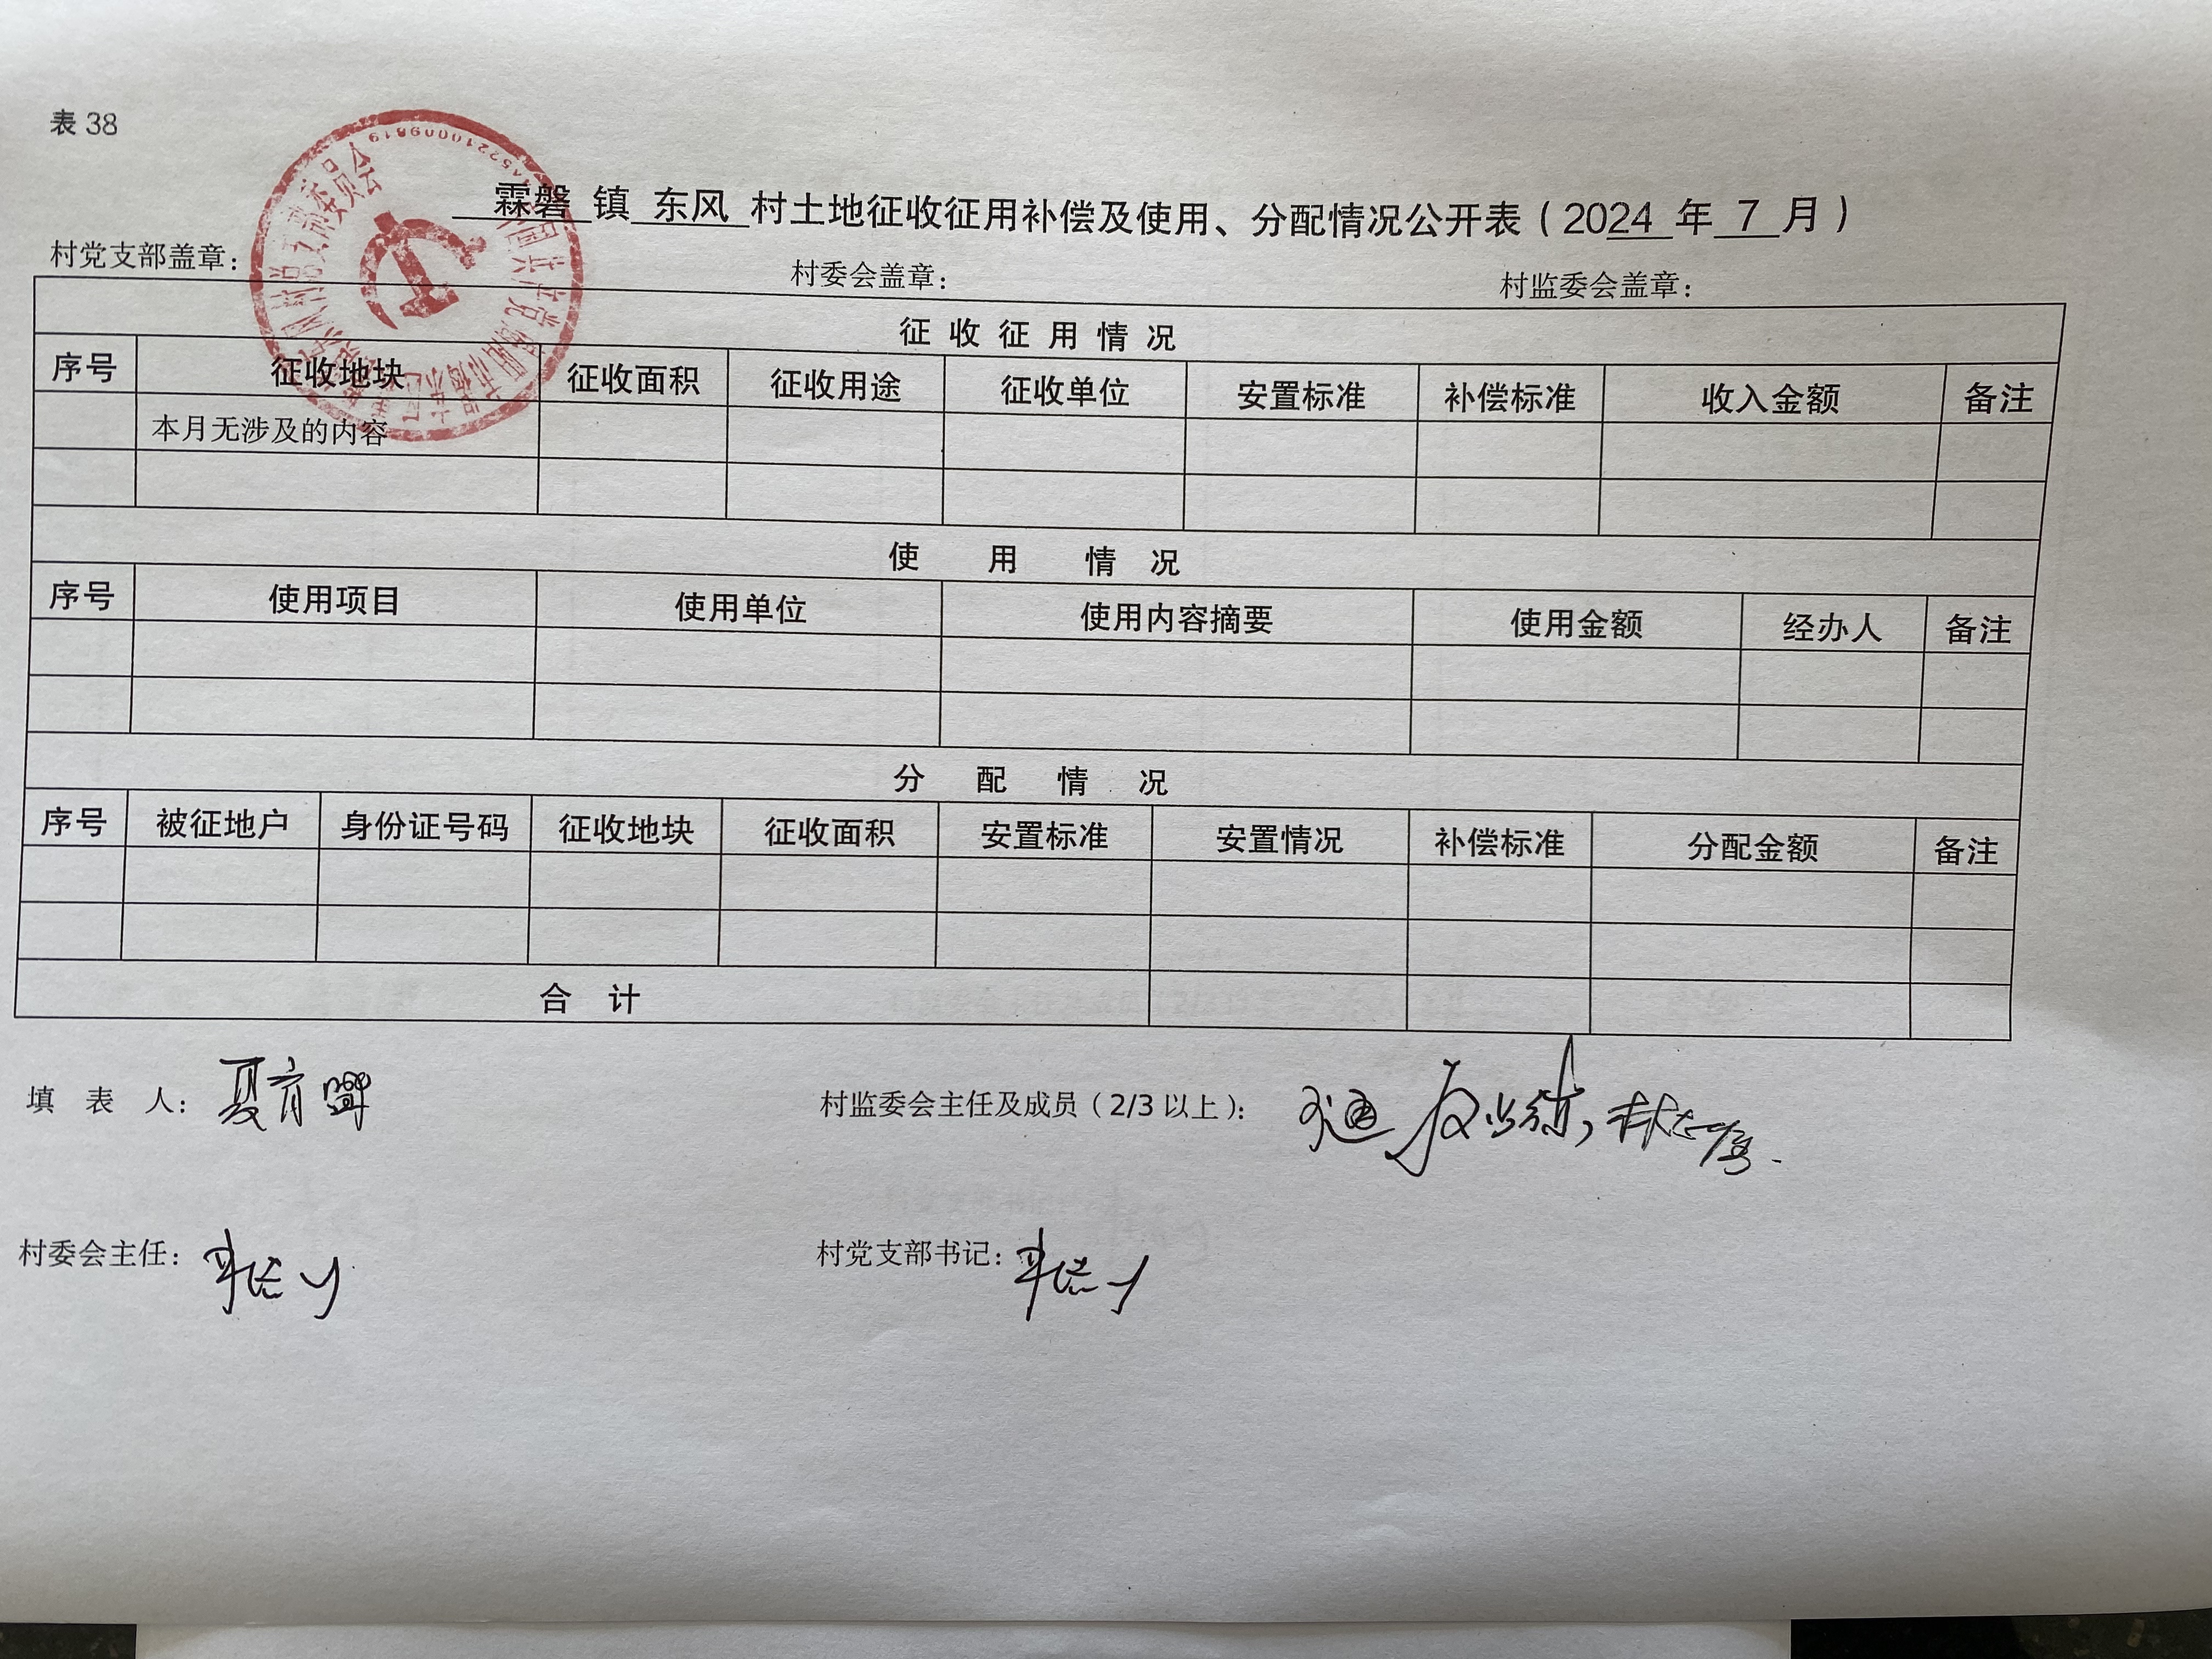 表 38
霖磐 镇 东风 村土地征收征用补偿及使用、分配情况公开表（2024 年 7 月）
村党支部盖章： 村委会盖章： 村监委会盖章：
征 收 征 用 情 况
序号 征收地块 征收面积 征收用途 征收单位 安置标准 补偿标准 收入金额 备注
本月无涉及的内容
使 用 情 况
序号 使用项目 使用单位 使用内容摘要 使用金额 经办人 备注
分 配 情 况
序号 被征地户 身份证号码 征收地块 征收面积 安置标准 安置情况 补偿标准 分配金额 备注
合 计
填 表 人： 村监委会主任及成员（2/3 以上）：
村委会主任： 村党支部书记：